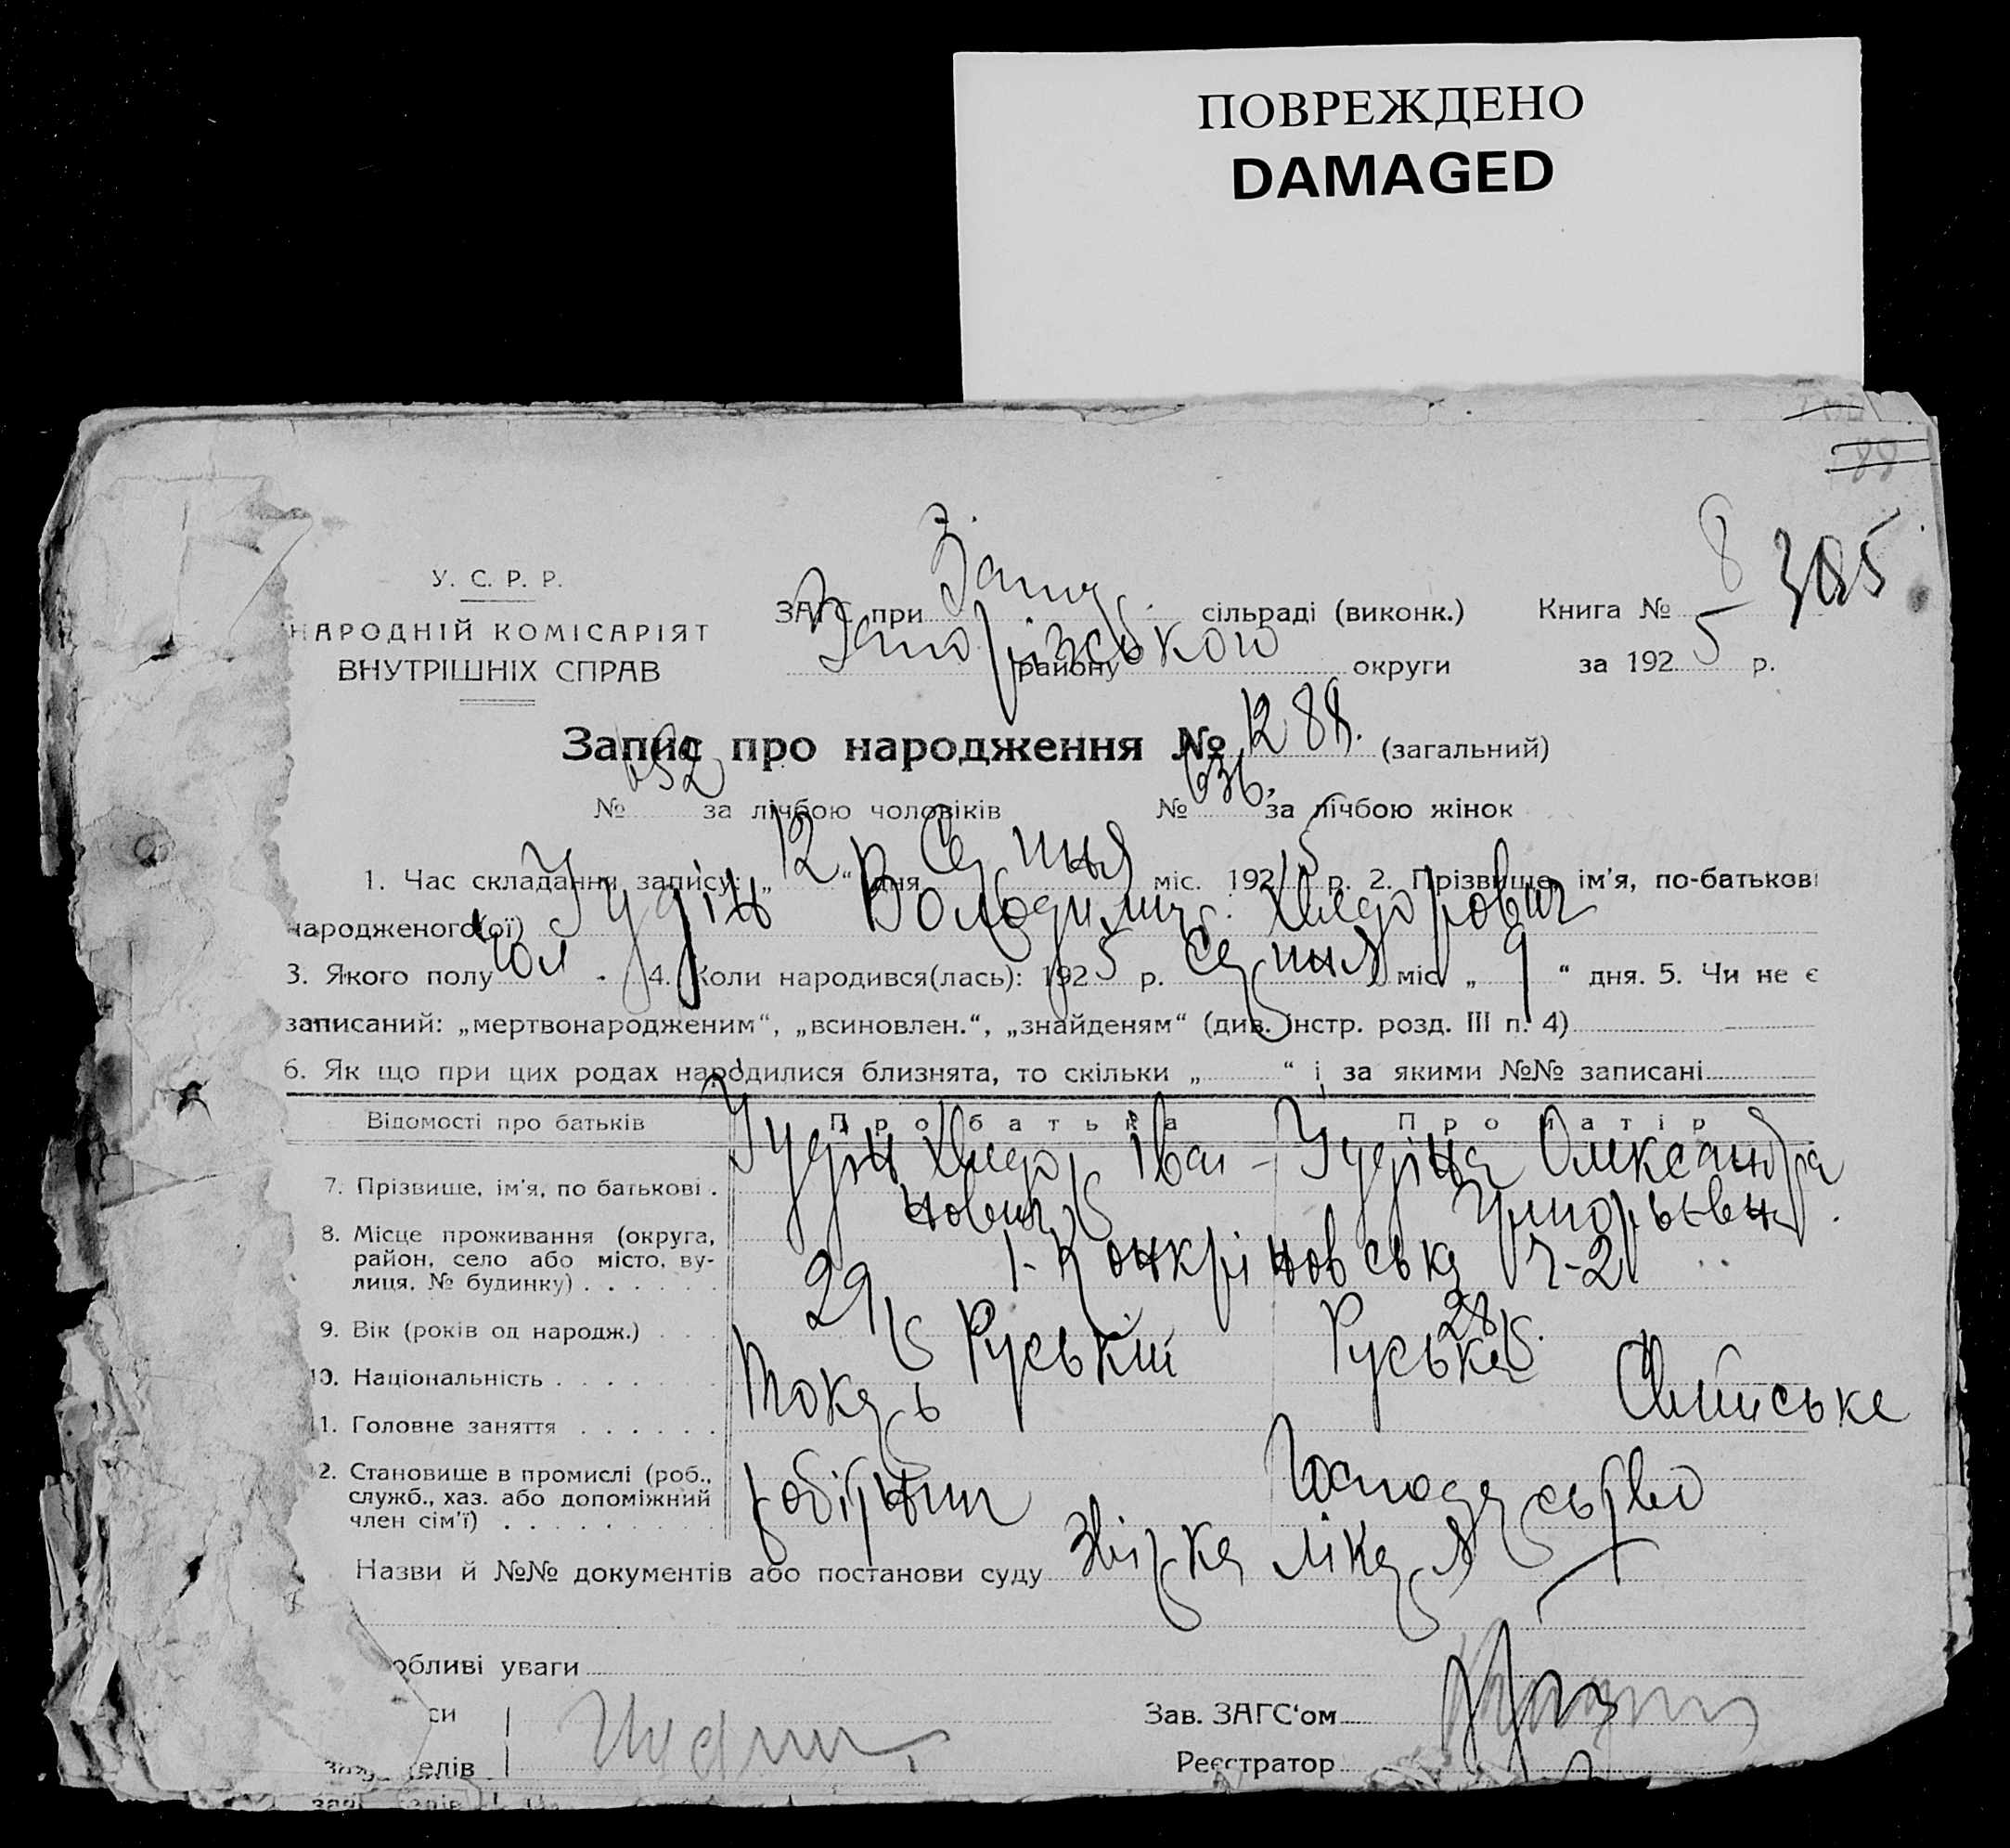 ПОВРЕЖДЕНО
DAMAGED
88
8 305
У. С. Р. Р.
НАРОДНІЙ КОМІСАРІЯТ
ВНУТРІШНІХ СПРАВ
ЗАГС при Запор. сільраді (виконк.) Книга №
району Запоріжської округи за 1925 р.
Запис про народження № 1288. (загальний)
№ 652 за лічбою чоловіків № 636. за лічбою жінок
1. Час складання запису: „12“ дня Серпня міс. 1925 р. 2. Прізвище, ім'я, по-батькові
народженого(ої) Гудін Володимир Хведорович
3. Якого полу чол. 4. Коли народився(лась): 1925 р. Серпня міс. „9“ дня. 5. Чи не є
записаний: „мертвонародженим“, „всиновлен.“, „знайденям“ (див. інстр. розд. III п. 4)
6. Як що при цих родах народилися близнята, то скільки „ “ і за якими №№ записані
Відомості про батьків Про батька Про матір
7. Прізвище, ім'я, по батькові . Гудін Хведор Іванович Гудіна Олександра Григорьевна.
8. Місце проживання (округа,
район, село або місто, вулиця, № будинку) . . . . . . 1-
9. Вік (років од народж.) . . . 29 р. 28 р.
10. Національність . . . . . . . Руській Руська
11. Головне заняття . . . . . . Токарь
12. Становище в промислі (роб.,
служб., хаз. або допоміжний
член сім'ї) . . . . . . . . . робітник Господарьство
Назви й №№ документів або постанови суду Звірка лікаря
обливі уваги
си
Зав. ЗАГС'ом
елів
Реєстратор